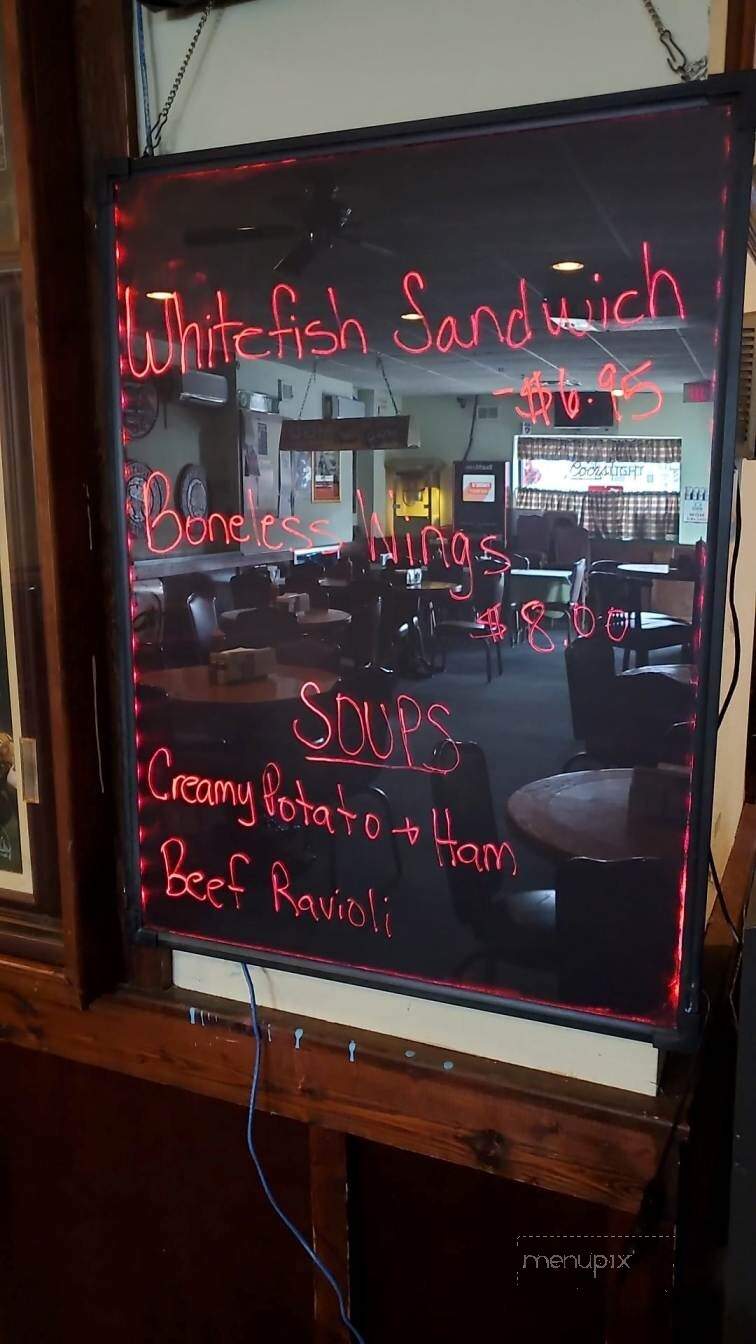 Whitefish Sandwich
- $6.95
Boneless Wings
$8.00
SOUPS
Creamy Potato + Ham
Beef Ravioli
Coors LIGHT
menupix